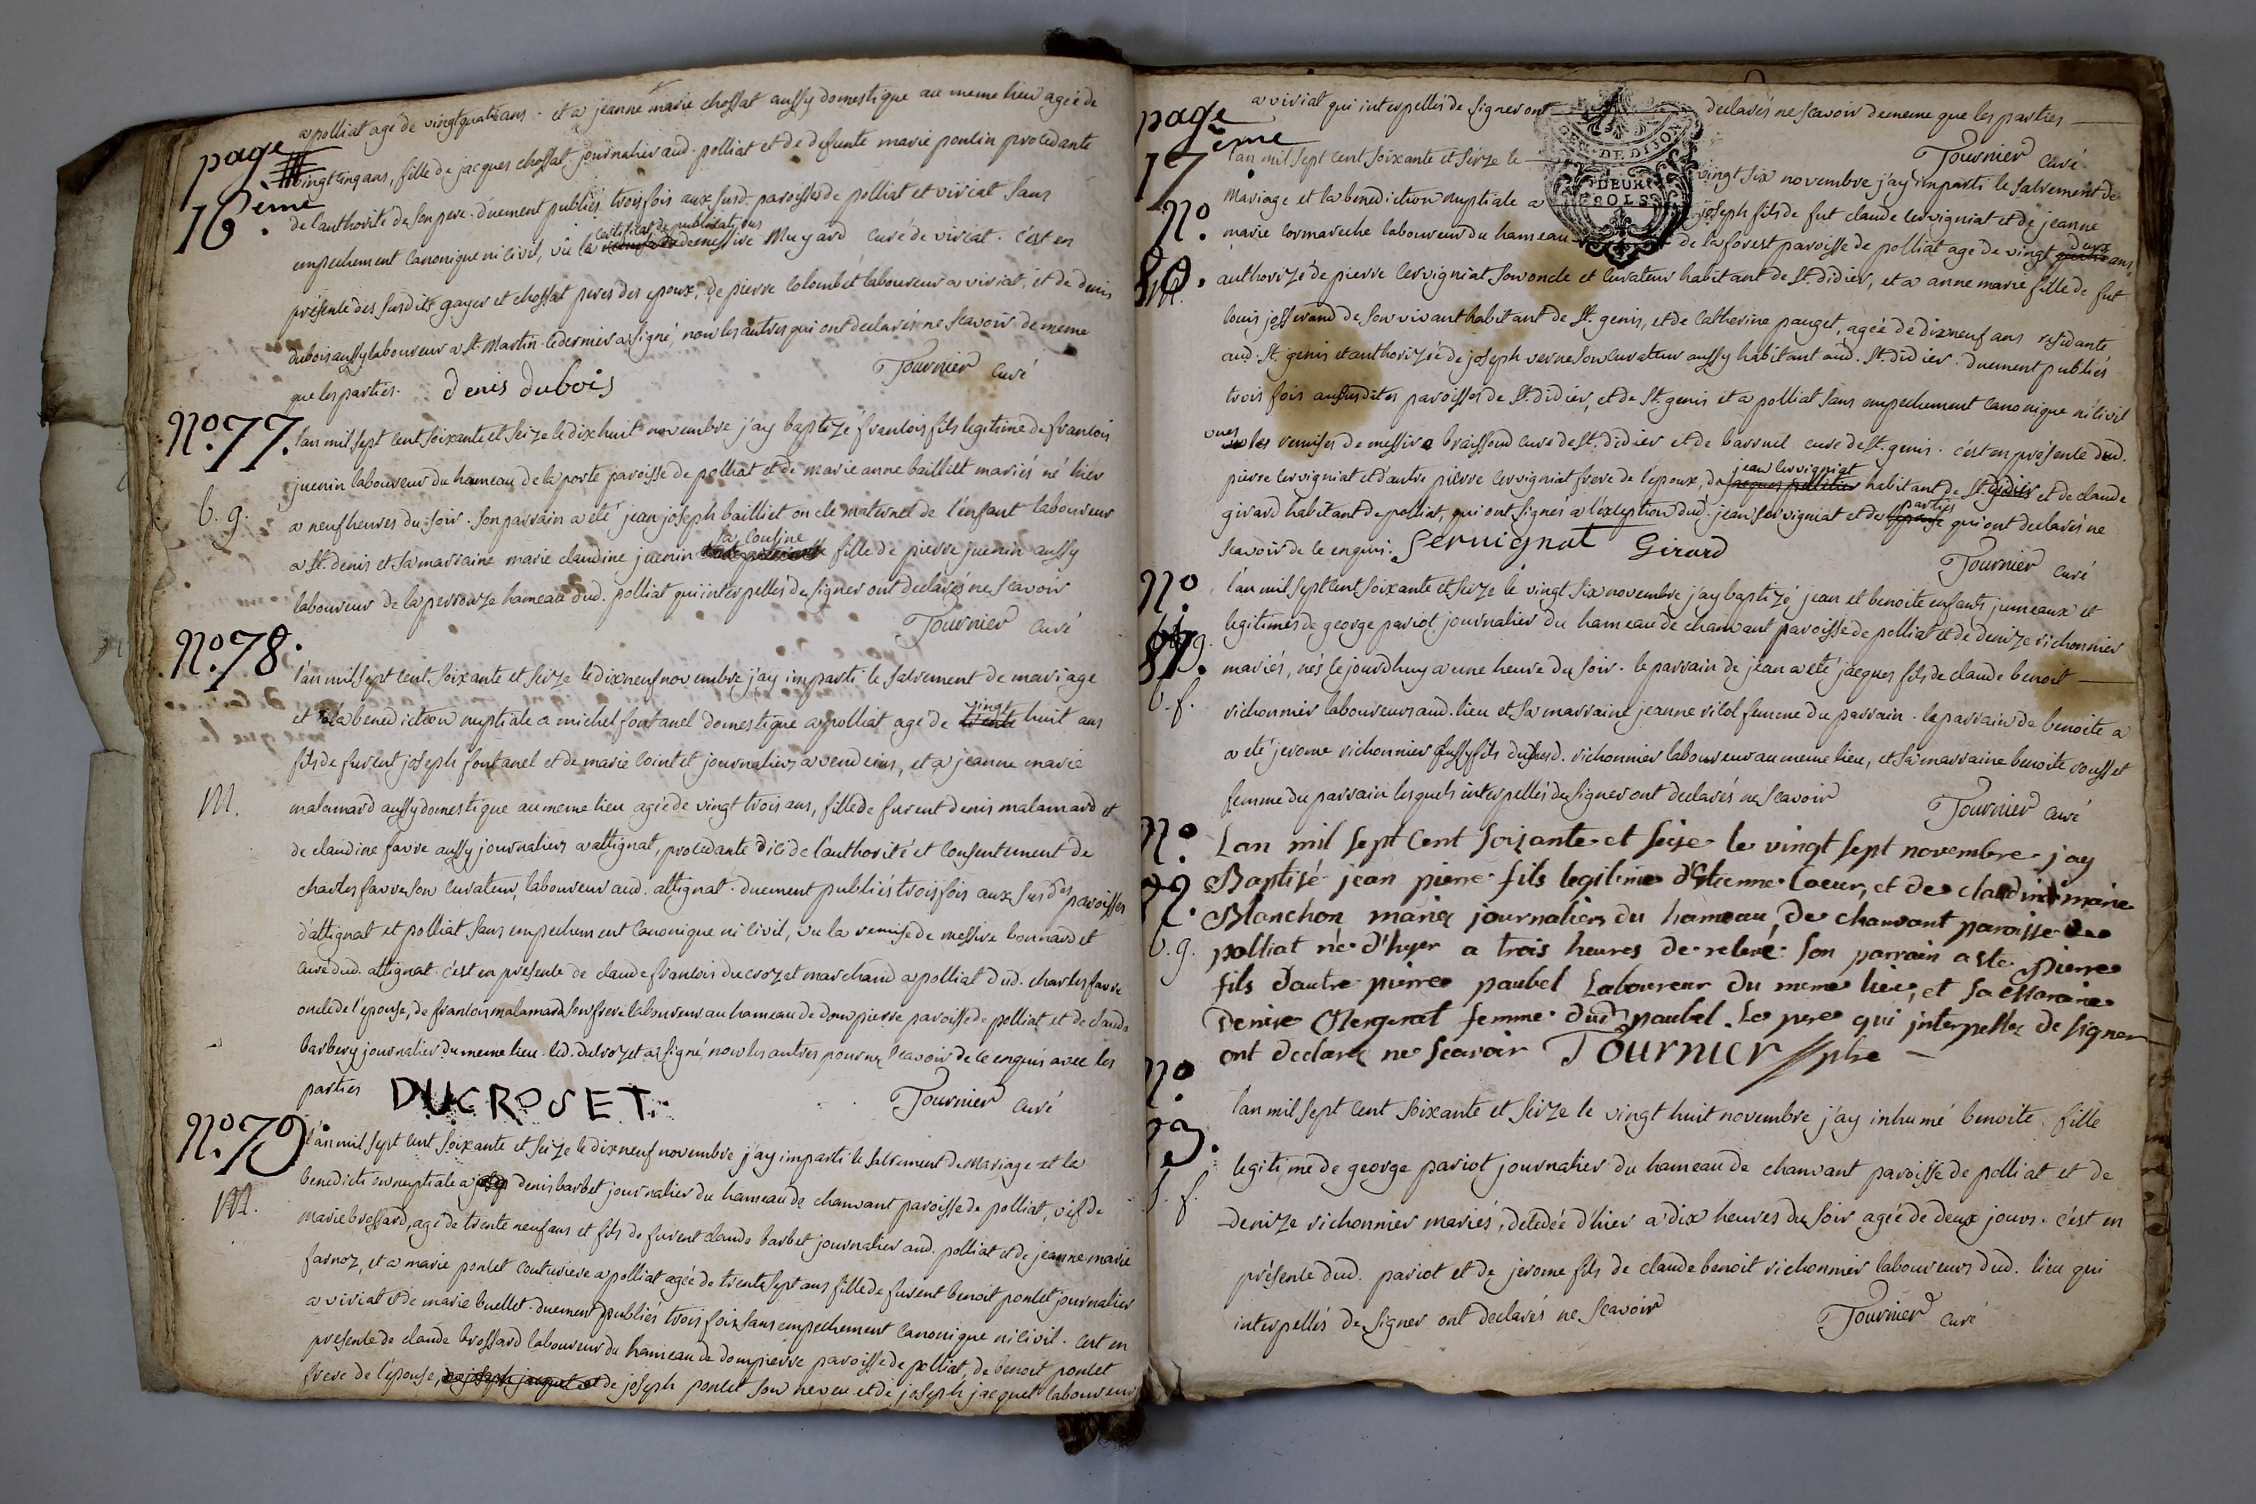 page 16.eme
a polliat agé de vingtquatre ans. et a jeanne marie chossat aussy domestique au meme lieu agée de
vingtcinq ans, fille de jacques chossat journalier aud. polliat et de defunte marie poncin procedante
de l'authorité de son pere. duement publiés trois fois aux susd. paroisses de polliat et viriat sans
empechement canonique ni civil, vu le certificat de publications de messire Muyard curé de viriat. c'est en
présence des susdits gayer et chossat peres des epoux, de pierre colombet laboureur a viriat, et de denis
dubois aussy laboureur a St. Martin. le dernier a signé, non les autres qui ont declarés ne scavoir de meme
que les parties. denis dubois Tournier curé
No. 77. l'an mil sept cent soixante et seize le dixhuit novembre j'ay baptizé francois fils legitime de francois
juenin laboureur du hameau de la porte paroisse de polliat et de marie anne bailliet mariés né hier
b. g. a neuf heures du soir. son parrain a été jean joseph bailliet oncle maternel de l'enfant laboureur
a St. denis et sa marraine marie claudine juenin sa cousine fille de pierre juenin aussy
laboureur de la perrouze hameau dud. polliat qui interpellés de signer ont declarés ne scavoir
Tournier curé
No. 78.
l'an mil sept cent soixante et seize le dixneuf novembre j'ay imparti le sacrement de mariage
et la benediction nuptiale a michel fontanel domestique a polliat agé de vingt huit ans
fils de furent joseph fontanel et de marie cointet journaliers a vendeins, et a jeanne marie
M. malamard aussy domestique au meme lieu agée de vingt trois ans, fille de furent denis malamard et
de claudine favre aussy journaliers a attignat, procedante d'ici de l'authorité et consentement de
charles favre son curateur, laboureur aud. attignat. duement publiés trois fois aux susd.des paroisses
d'attignat et polliat sans empechement canonique ni civil, vu la remise de messire bonnardet
curé dud. attignat. c'est en présence de claude francois ducrozet marchand a polliat dud. charles favre
oncle de l'epouse, de francois malamard son frere laboureur au hameau de dompierre paroisse de polliat et de claude
barbery journalier du meme lieu. led. ducrozet a signé non les autres pour ne scavoir de ce enquis avec les
parties DUCROSET Tournier curé
No. 79. l'an mil sept cent soixante et seize le dixneuf novembre j'ay imparti le sacrement de Mariage et la
M. benediction nuptiale a denis barbet journalier du hameau de chanvant paroisse de polliat, vef de
marie brossard, agé de trente neuf ans et fils de furent claude barbet journalier aud. polliat et de jeanne marie
farnoz, et a marie poncet couturiere a polliat agée de trente sept ans fille de furent benoit poncet journalier
a viriat et de marie buellet. duement publiés trois fois sans empechement canonique ni civil. c'est en
presence de claude brossard laboureur du hameau de dompierre paroisse de polliat, de benoit poncet
frere de l'épouse, de joseph jacquet et de joseph poncet son neveu et de joseph jacquet laboureurs
page 17 eme
a viriat qui interpellés de signer ont declarés ne scavoir de meme que les parties
Tournier curé
GEN. DE DIJON
DEUX
SOLS
No. 80. M.
l'an mil sept cent soixante et seize le vingt six novembre j'ay imparti le sacrement de
Mariage et la benediction nuptiale a joseph fils de fut claude cervigniat et de jeanne
marie cormareche laboureur du hameau de la forest paroisse de polliat agé de vingt deux ans,
authorizé de pierre cervigniat son oncle et curateur habitant de St. didier, et a anne marie fille de fut
louis josserand de son vivant habitant de St. genis, et de catherine pauget, agée de dixneuf ans residante
aud. St. genis et authorizée de joseph verne son curateur aussy habitant aud. St. didier. duement publiés
trois fois aususdites paroisses de St. didier, et de St. genis et a polliat sans empechement canonique ni civil
vues les remises de messire braissoud curé de St. didier et de barruel curé de St. genis. c'est en présence dud.
pierre cervigniat et d'autre pierre cervigniat frere de l'epoux, de jean cervigniat habitant de St. didier et de claude
girard habitant de polliat, qui ont signés a l'exception dud. jean cervigniat et des parties qui ont declarés ne
scavoir de ce enquis. Servignat Girard Tournier curé
No. 81. b. g. b. f.
l'an mil sept cent soixante et seize le vingt six novembre j'ay baptizé jean et benoite enfants jumeaux et
legitimes de george pariot journalier du hameau de chanvant paroisse de polliat et de denize richonnier
mariés, nés le jourdhuy a une heure du soir. le parrain de jean a été jacques fils de claude benoit
richonnier laboureurs aud. lieu et sa marraine jeanne vilol femme du parrain. le parrain de benoite a
a été jerome richonnier aussy fils du susd. richonnier laboureur au meme lieu, et sa marraine benoite rousset
femme du parrain lesquels interpellés de signer ont declarés ne scavoir Tournier curé
No. 82. b. g.
Lan mil sept cent soixante et seise le vingt sept novembre jay
Baptisé jean pierre fils legitime d'Etienne Coeur, et de claudine marie
Blanchon mariez journaliers du hameau de chanvant paroisse de
polliat né d'hyer a trois heures de relevé. Son parrain a été Pierre
fils d'autre pierre paubel Laboureur du meme lieu, et sa Maraine
Denise Mergeret femme dud. paubel. Le pere qui interpellez de signer
ont declaré ne scavoir Tournier ptre
No. 83. s. f.
l'an mil sept cent soixante et seize le vingt huit novembre j'ay inhumé benoite fille
legitime de george pariot journalier du hameau de chanvant paroisse de polliat et de
denize richonnier mariés, decedée d'hier a dix heures du soir agée de deux jours. c'est en
présence dud. pariot et de jerome fils de claude benoit richonnier laboureurs dud. lieu qui
interpellés de signer ont declarés ne scavoir Tournier curé